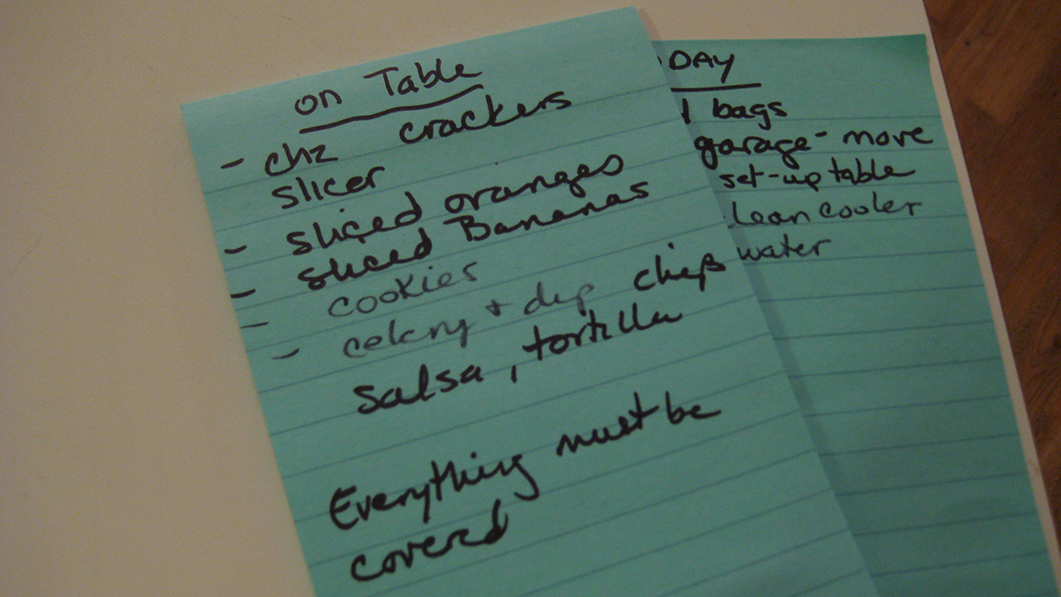 on Table
- chz crackers
slicer
- sliced oranges
- sliced Bananas
- cookies
- celery + dip chips
salsa, tortilla
Everything must be
covered
DAY
bags
garage - move
set-up table
lean cooler
water